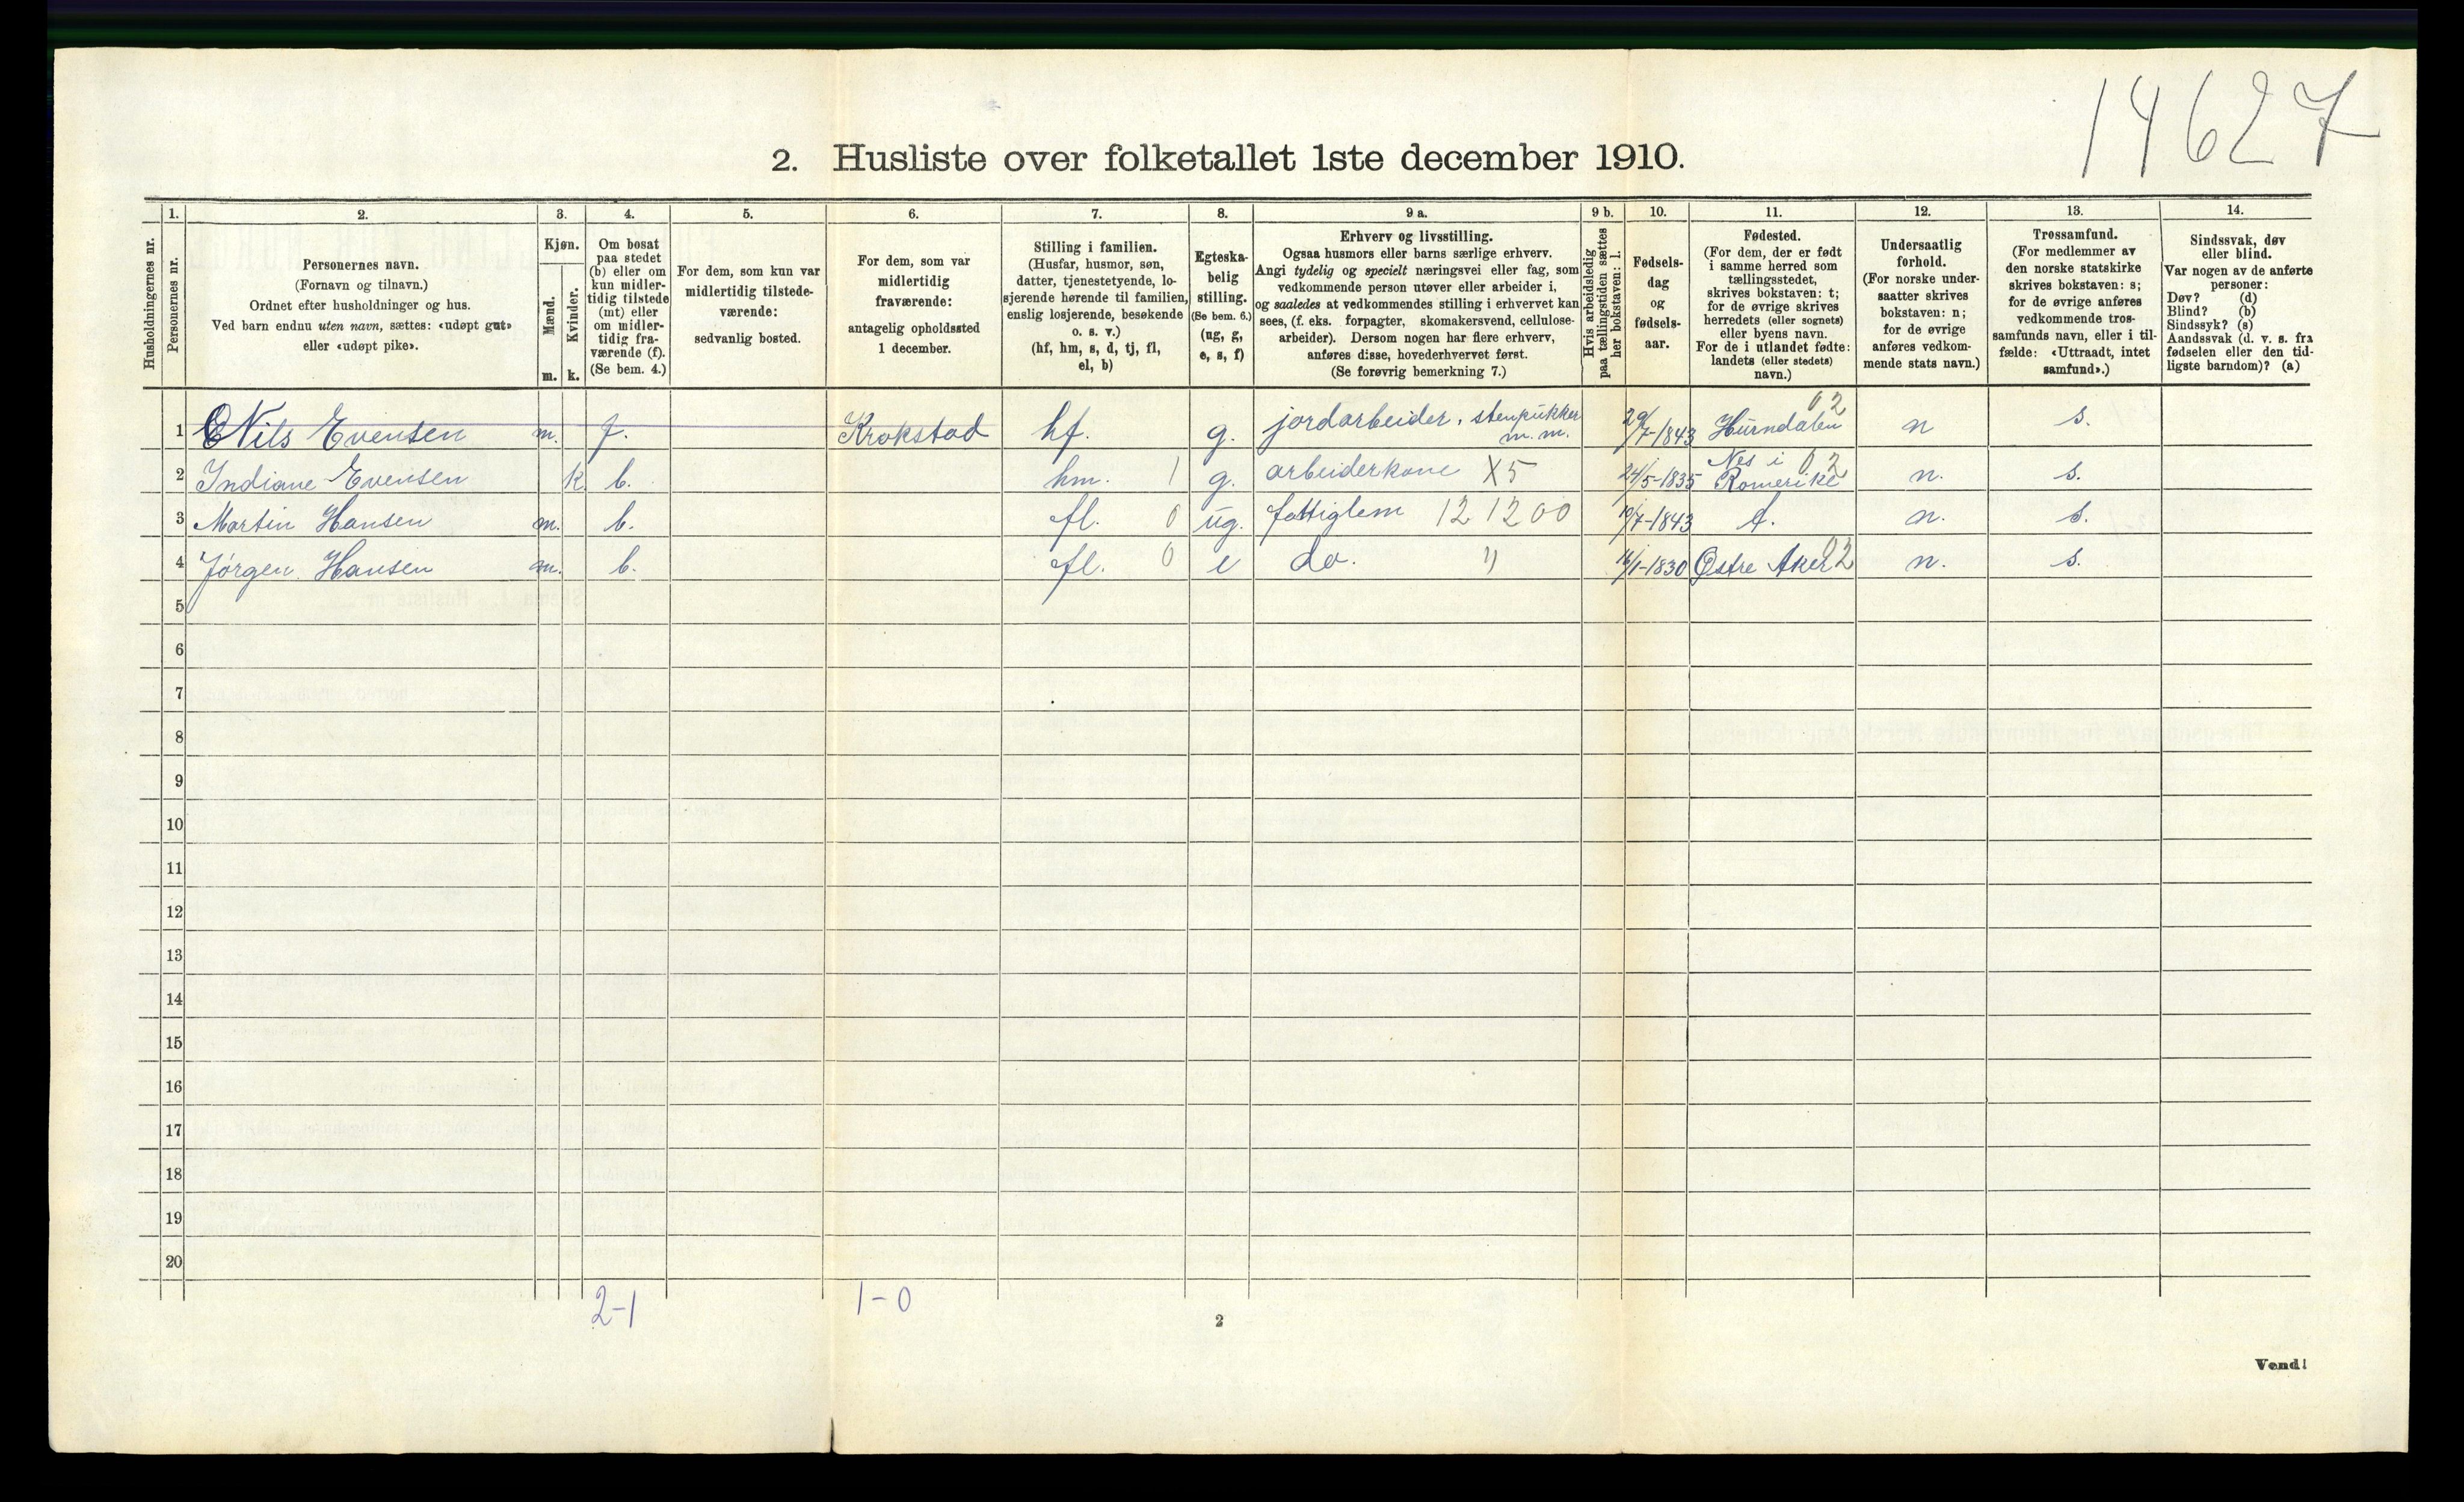 14627
2. Husliste over folketallet 1ste december 1910.
Husholdningernes nr.
1. Personernes nr.
2. Personernes navn.
(Fornavn og tilnavn.)
Ordnet efter husholdninger og hus.
Ved barn endnu uten navn, sættes: «udøpt gut»
eller «udøpt pike».
3. Kjøn.
Mænd. Kvinder.
m. k.
4. Om bosat
paa stedet
(b) eller om
kun midler-
tidig tilstede
(mt) eller
om midler-
tidig fra-
værende (f).
(Se bem. 4.)
5. For dem, som kun var
midlertidig tilstede-
værende:
sedvanlig bosted.
6. For dem, som var
midlertidig
fraværende:
antagelig opholdssted
1 december.
7. Stilling i familien.
(Husfar, husmor, søn,
datter, tjenestetyende, lo-
sjerende hørende til familien,
enslig losjerende, besøkende
o. s. v.)
(hf, hm, s, d, tj, fl,
el, b)
8. Egteska-
belig
stilling.
(Se bem. 6.)
(ug, g,
e, s, f)
9 a. Erhverv og livsstilling.
Ogsaa husmors eller barns særlige erhverv.
Angi tydelig og specielt næringsvei eller fag, som
vedkommende person utøver eller arbeider i,
og saaledes at vedkommendes stilling i erhvervet kan
sees, (f. eks. forpagter, skomakersvend, cellulose-
arbeider). Dersom nogen har flere erhverv,
anføres disse, hovederhvervet først.
(Se forøvrig bemerkning 7.)
9 b. Hvis arbeidsledig
paa tællingstiden sættes
her bokstaven: l.
10. Fødsels-
dag
og
fødsels-
aar.
11. Fødested.
(For dem, der er født
i samme herred som
tællingsstedet,
skrives bokstaven: t;
for de øvrige skrives
herredets (eller sognets)
eller byens navn.
For de i utlandet fødte:
landets (eller stedets)
navn.)
12. Undersaatlig
forhold.
(For norske under-
saatter skrives
bokstaven: n;
for de øvrige
anføres vedkom-
mende stats navn.)
13. Trossamfund.
(For medlemmer av
den norske statskirke
skrives bokstaven: s;
for de øvrige anføres
vedkommende tros-
samfunds navn, eller i til-
fælde: «Uttraadt, intet
samfund».)
14. Sindssvak, døv
eller blind.
Var nogen av de anførte
personer:
Døv? (d)
Blind? (b)
Sindssyk? (s)
Aandssvak (d. v. s. fra
fødselen eller den tid-
ligste barndom)? (a)
1 Nils Evensen m. f. Krokstad hf. g. jordarbeider, stenpukker m. m. 29/7-1843 Hurndalen 02 n s.
2 Indiane Evensen k b. hm. 1 g. arbeiderkone X5 24/5-1835 Nes i Romerike 02 n. s.
3 Martin Hansen m. b. fl. 0 ug. fattiglem 12 1200 19/7-1843 t. n. s.
4 Jørgen Hansen m. b. fl. 0 e do. " 16/1-1830 Østre Aker 02 n. s.
5
6
7
8
9
10
11
12
13
14
15
16
17
18
19
20
2-1 1-0
2
Vend!